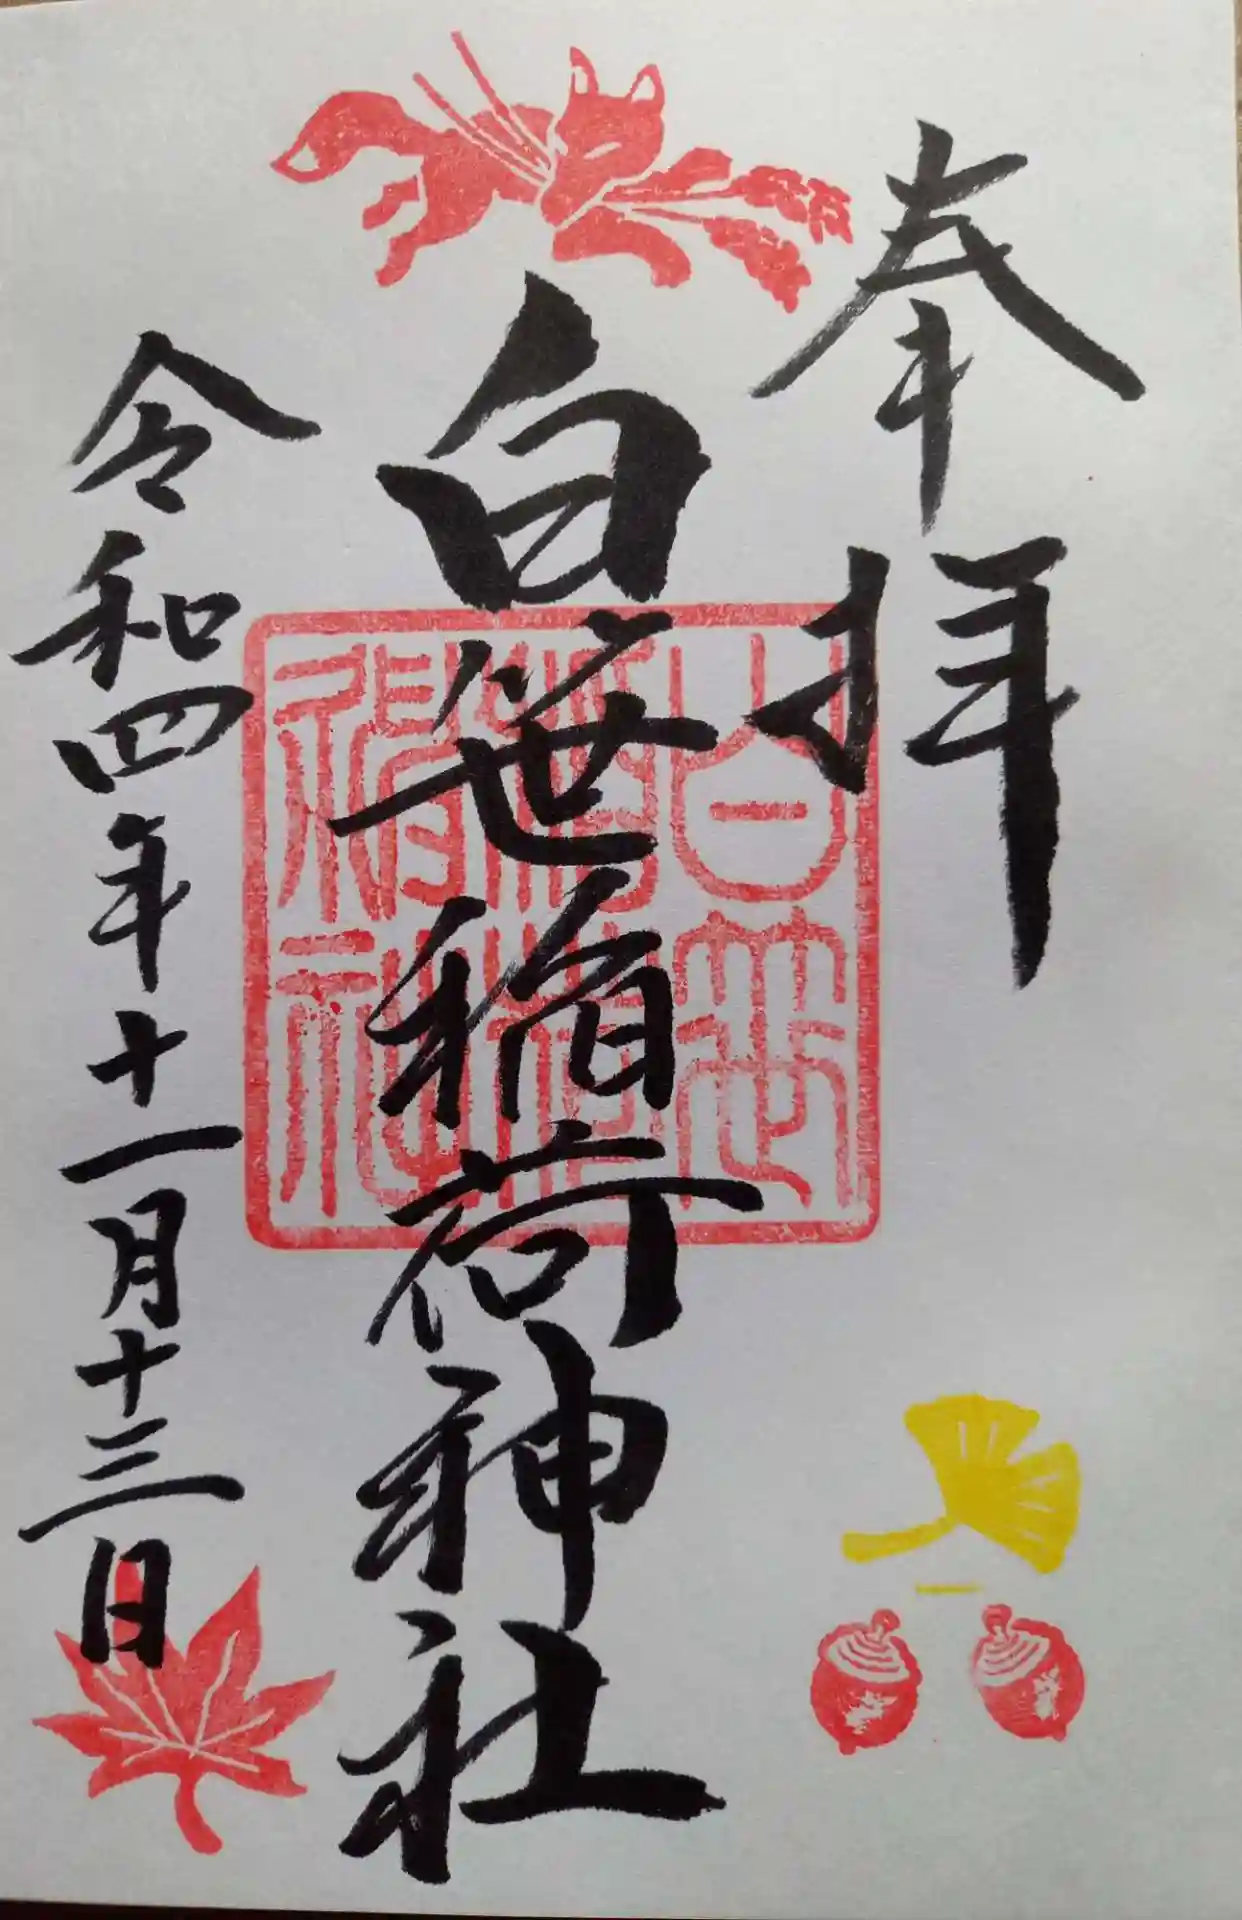 奉拝
白笹稲荷神社
令和四年十一月十三日
白笹稲荷神社